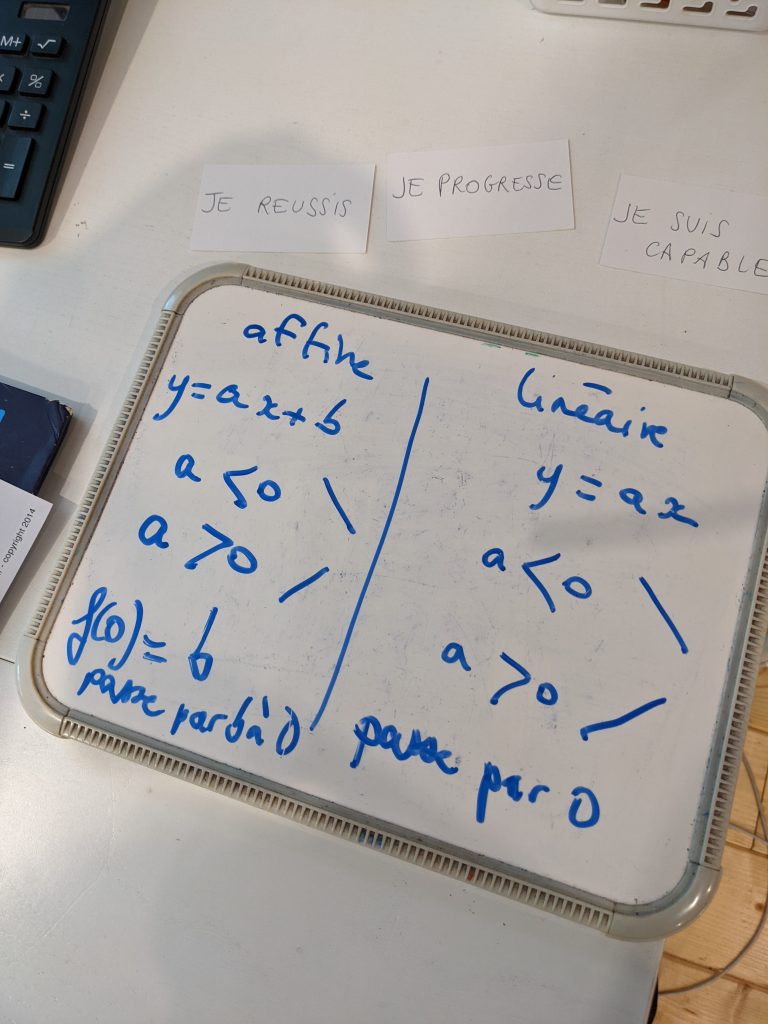 M+ √
%
÷
=
JE REUSSIS
JE PROGRESSE
JE SUIS
CAPABLE
- copyright 2014
affine
y=ax+b
a <0 \
a >0 /
f(0)= b
passe par b à 0
linéaire
y = ax
a <0 \
a >0 /
passe par 0